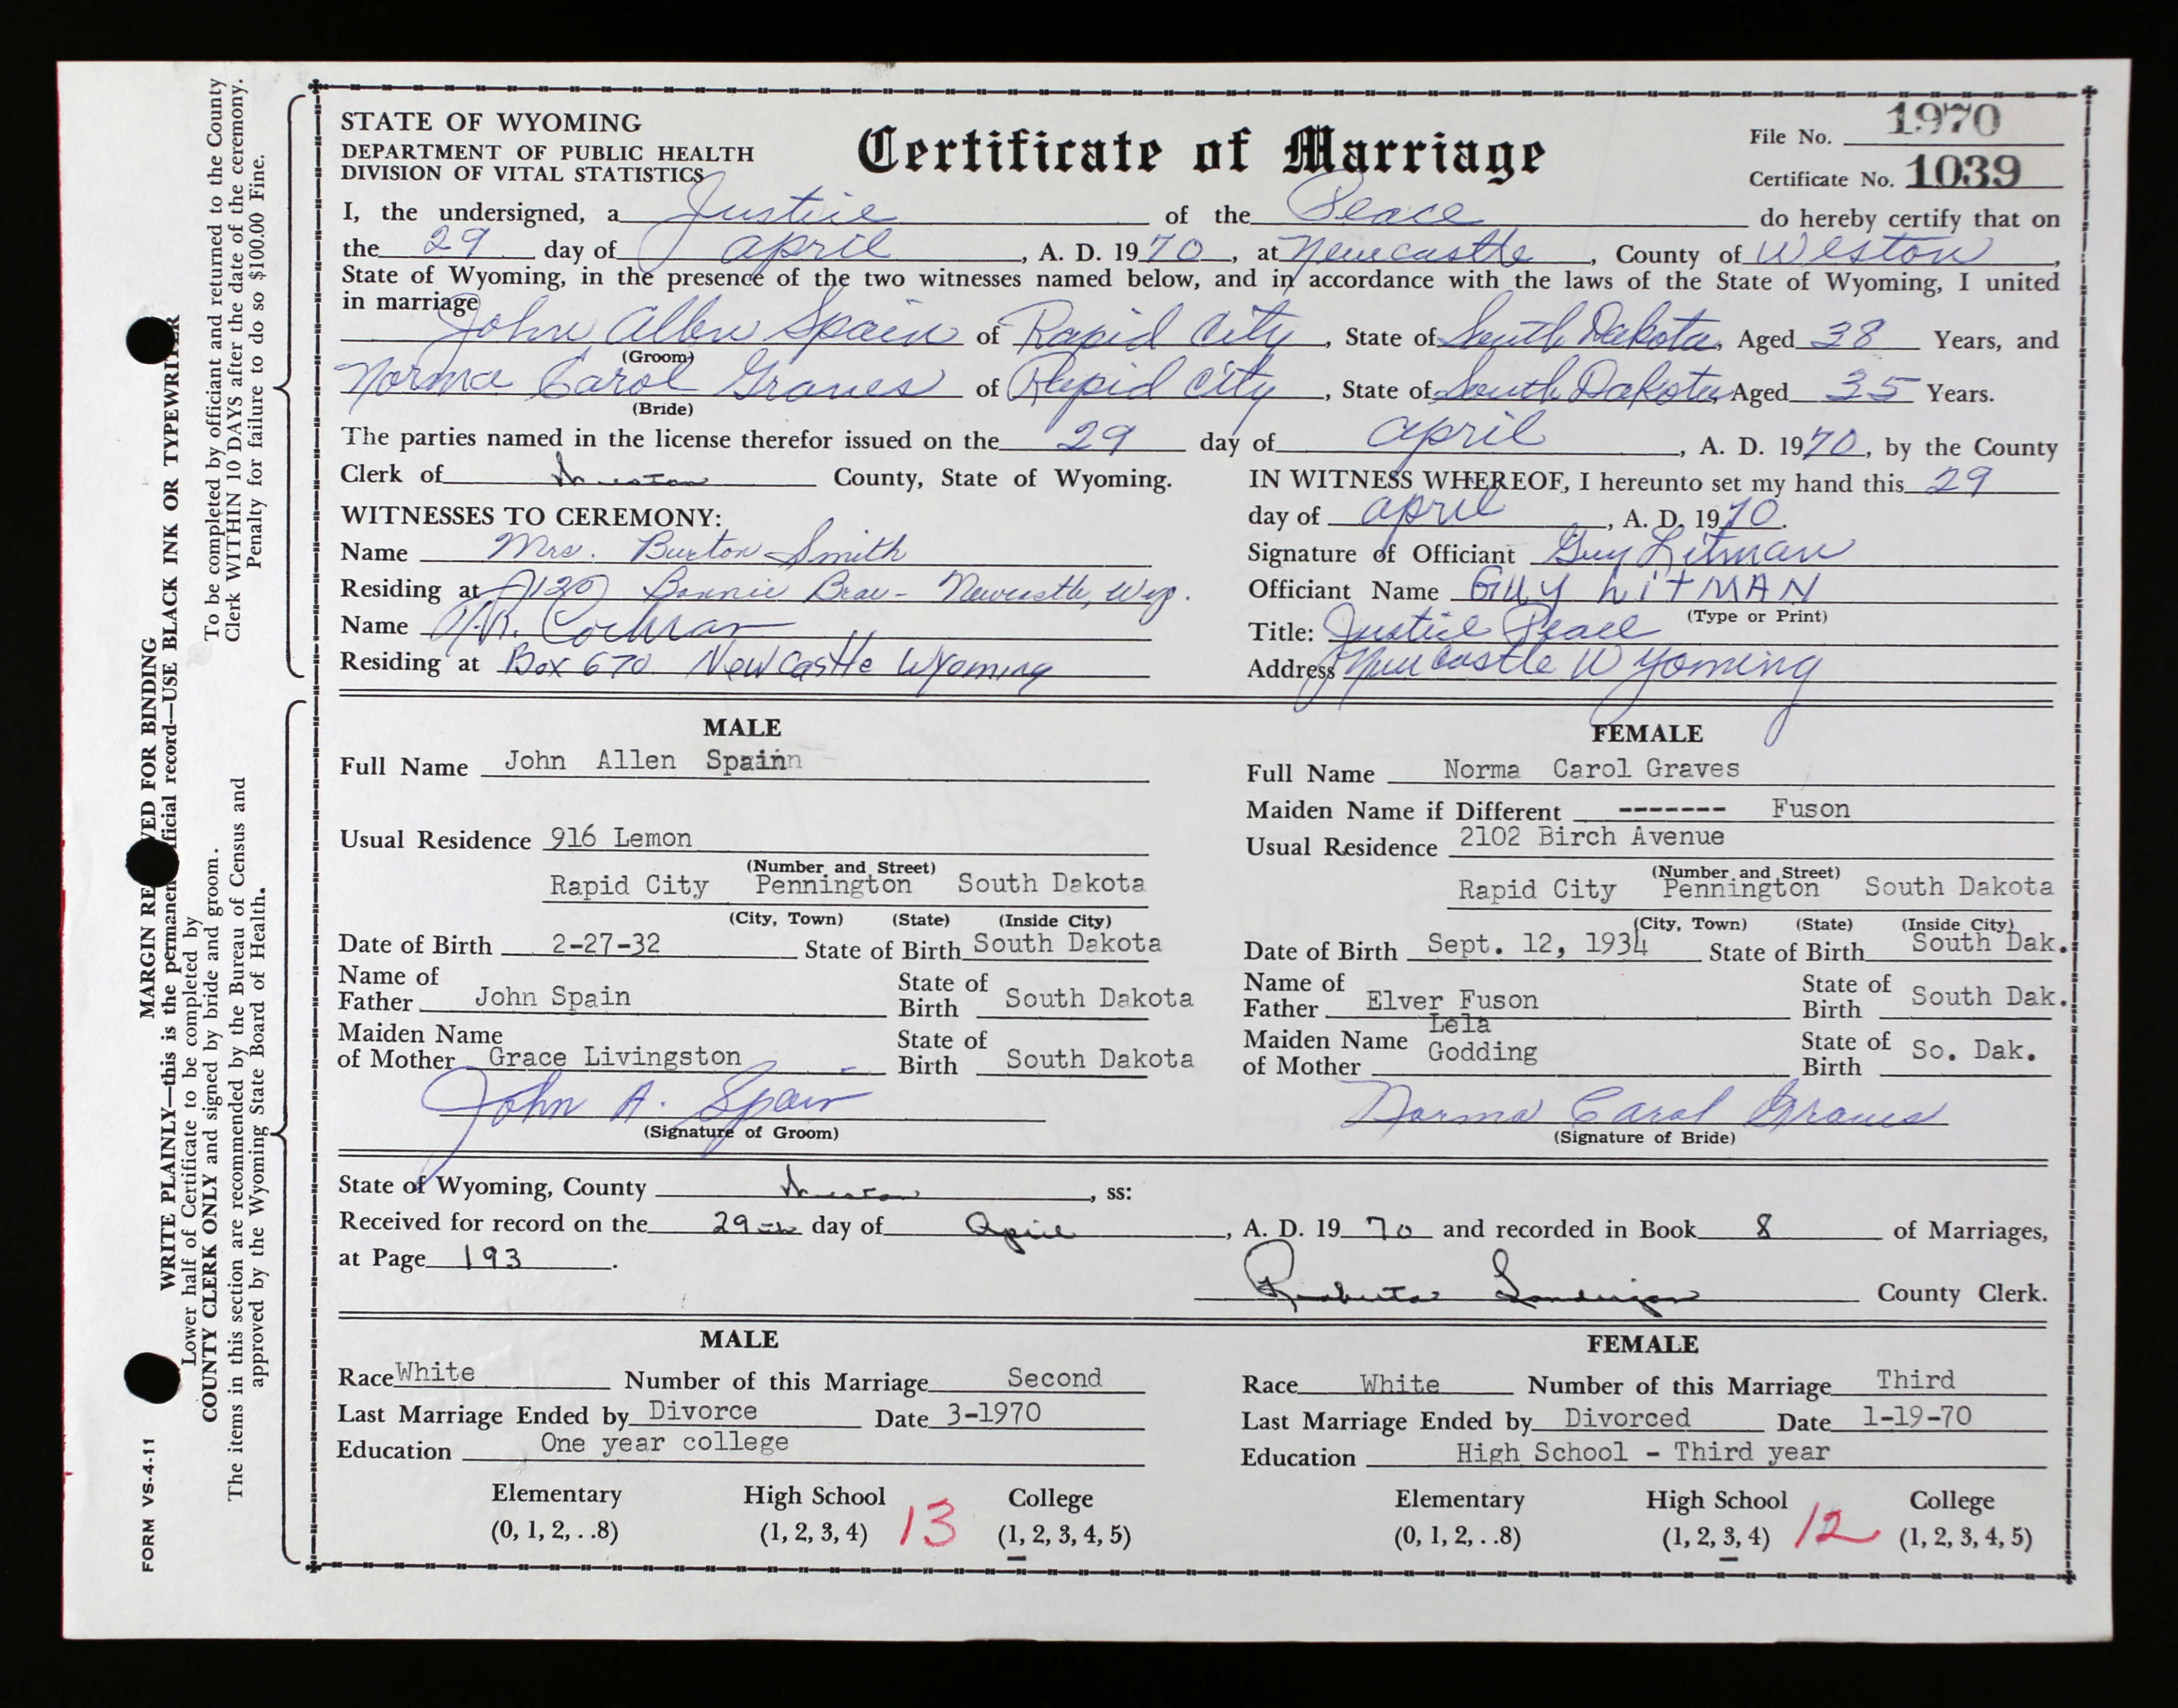 STATE OF WYOMING
DEPARTMENT OF PUBLIC HEALTH
DIVISION OF VITAL STATISTICS
Certificate of Marriage
File No. 1970
Certificate No. 1039
I, the undersigned, a Justice of the Peace do hereby certify that on
the 29 day of April, A. D. 1970, at Newcastle, County of Weston,
State of Wyoming, in the presence of the two witnesses named below, and in accordance with the laws of the State of Wyoming, I united
in marriage
John Allen Spain of Rapid City, State of South Dakota, Aged 38 Years, and
(Groom)
Norma Carol Graves of Rapid City, State of South Dakota, Aged 35 Years.
(Bride)
The parties named in the license therefor issued on the 29 day of April, A. D. 1970, by the County
Clerk of Weston County, State of Wyoming.
IN WITNESS WHEREOF, I hereunto set my hand this 29
day of April, A. D. 1970.
WITNESSES TO CEREMONY:
Name Mrs. Burton Smith
Residing at 1130 Bonnie Brae - Newcastle, Wyo.
Name Cochran
Residing at Box 670 NewCastle Wyoming
Signature of Officiant Guy Litman
Officiant Name GUY LITMAN
(Type or Print)
Title: Justice Peace
Address Newcastle Wyoming
MALE
Full Name John Allen Spainn
Usual Residence 916 Lemon
(Number and Street)
Rapid City Pennington South Dakota
(City, Town) (State) (Inside City)
Date of Birth 2-27-32 State of Birth South Dakota
Name of Father John Spain State of Birth South Dakota
Maiden Name of Mother Grace Livingston State of Birth South Dakota
John A. Spain
(Signature of Groom)
FEMALE
Full Name Norma Carol Graves
Maiden Name if Different ------- Fuson
Usual Residence 2102 Birch Avenue
(Number and Street)
Rapid City Pennington South Dakota
(City, Town) (State) (Inside City)
Date of Birth Sept. 12, 1934 State of Birth South Dak.
Name of Father Elver Fuson State of Birth South Dak.
Maiden Name of Mother Lela Godding State of Birth So. Dak.
Norma Carol Graves
(Signature of Bride)
State of Wyoming, County Weston, ss:
Received for record on the 29th day of April, A. D. 1970 and recorded in Book 8 of Marriages,
at Page 193.
Roberta County Clerk.
MALE
Race White Number of this Marriage Second
Last Marriage Ended by Divorce Date 3-1970
Education One year college
Elementary High School College
(0, 1, 2, . .8) (1, 2, 3, 4) 13 (1, 2, 3, 4, 5)
FEMALE
Race White Number of this Marriage Third
Last Marriage Ended by Divorced Date 1-19-70
Education High School - Third year
Elementary High School College
(0, 1, 2, . .8) (1, 2, 3, 4) 12 (1, 2, 3, 4, 5)
MARGIN RE VED FOR BINDING
WRITE PLAINLY—this is the permanen ficial record—USE BLACK INK OR TYPEWRITER
To be completed by officiant and returned to the County
Clerk WITHIN 10 DAYS after the date of the ceremony.
Penalty for failure to do so $100.00 Fine.
Lower half of Certificate to be completed by
COUNTY CLERK ONLY and signed by bride and groom.
The items in this section are recommended by the Bureau of Census and
approved by the Wyoming State Board of Health.
FORM VS-4-11